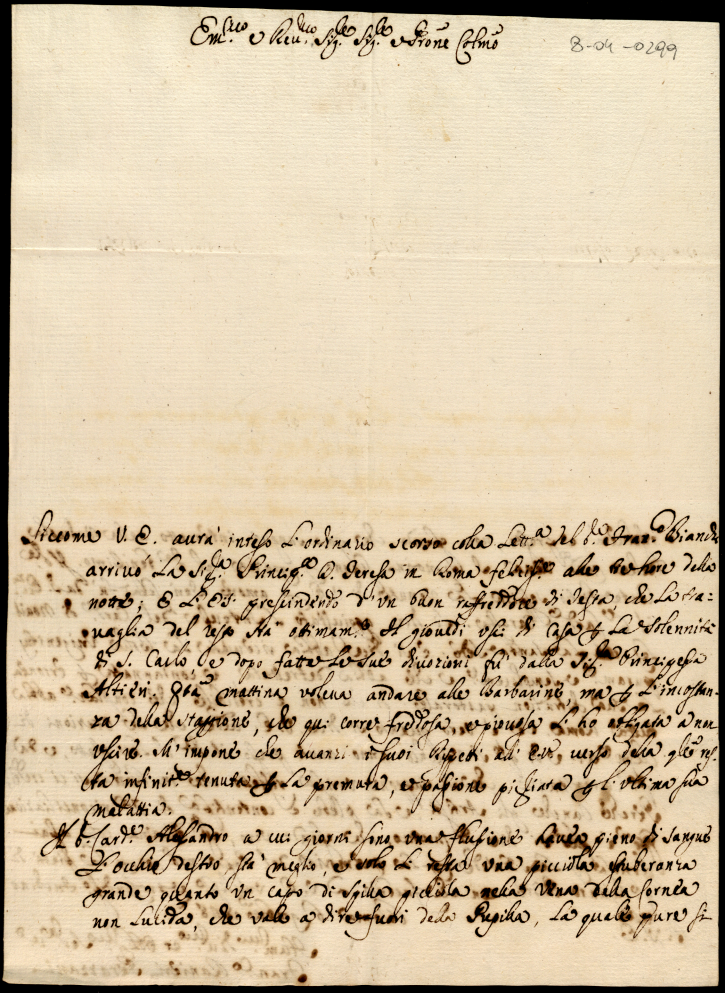 Em.mo e Rev.mo Sig.re Sig.re e Prone Colmo
8-04-0299
Siccome V. E. aurà inteso l'ordinario scorso colla Lett.a del S.r Fran.co Bianchi
arrivò La Sig.ra Princip.a D. Teresa in Roma alle hore della
notte; E L'E.S. prescindendo d'un buon raffreddore di testa, che La tra-
uaglia del resto stà ottimam.te Il giouedì uscì di Casa p La Solennità
di S. Carlo, e dopo fatte Le sue diuozioni fù dalla Sig.ra Principessa
Altieri. Q.sta mattina voleua andare alle Barbarine, ma p L'incostan-
za della Staggione, che qui corre freddosa, e piouosa L'ho obligata a non
uscire. M'impone che auanzi i suoi Rispetti all'E.V. verso della q.le res-
ta infinit.te tenuta p La premura, e passione pigliata p l'ultima sua
malattia.
Il S.r Card.le Alessandro a cui giorni sono una flussione haueua pieno di sangue
L'occhio destro stà meglio, e solo Li resta una picciola stuberanza
grande quanto un capo di spilla picciola nella vena della Cornea
non Lucida, che vale a dire fuori della Pupilla, La quale pure si-